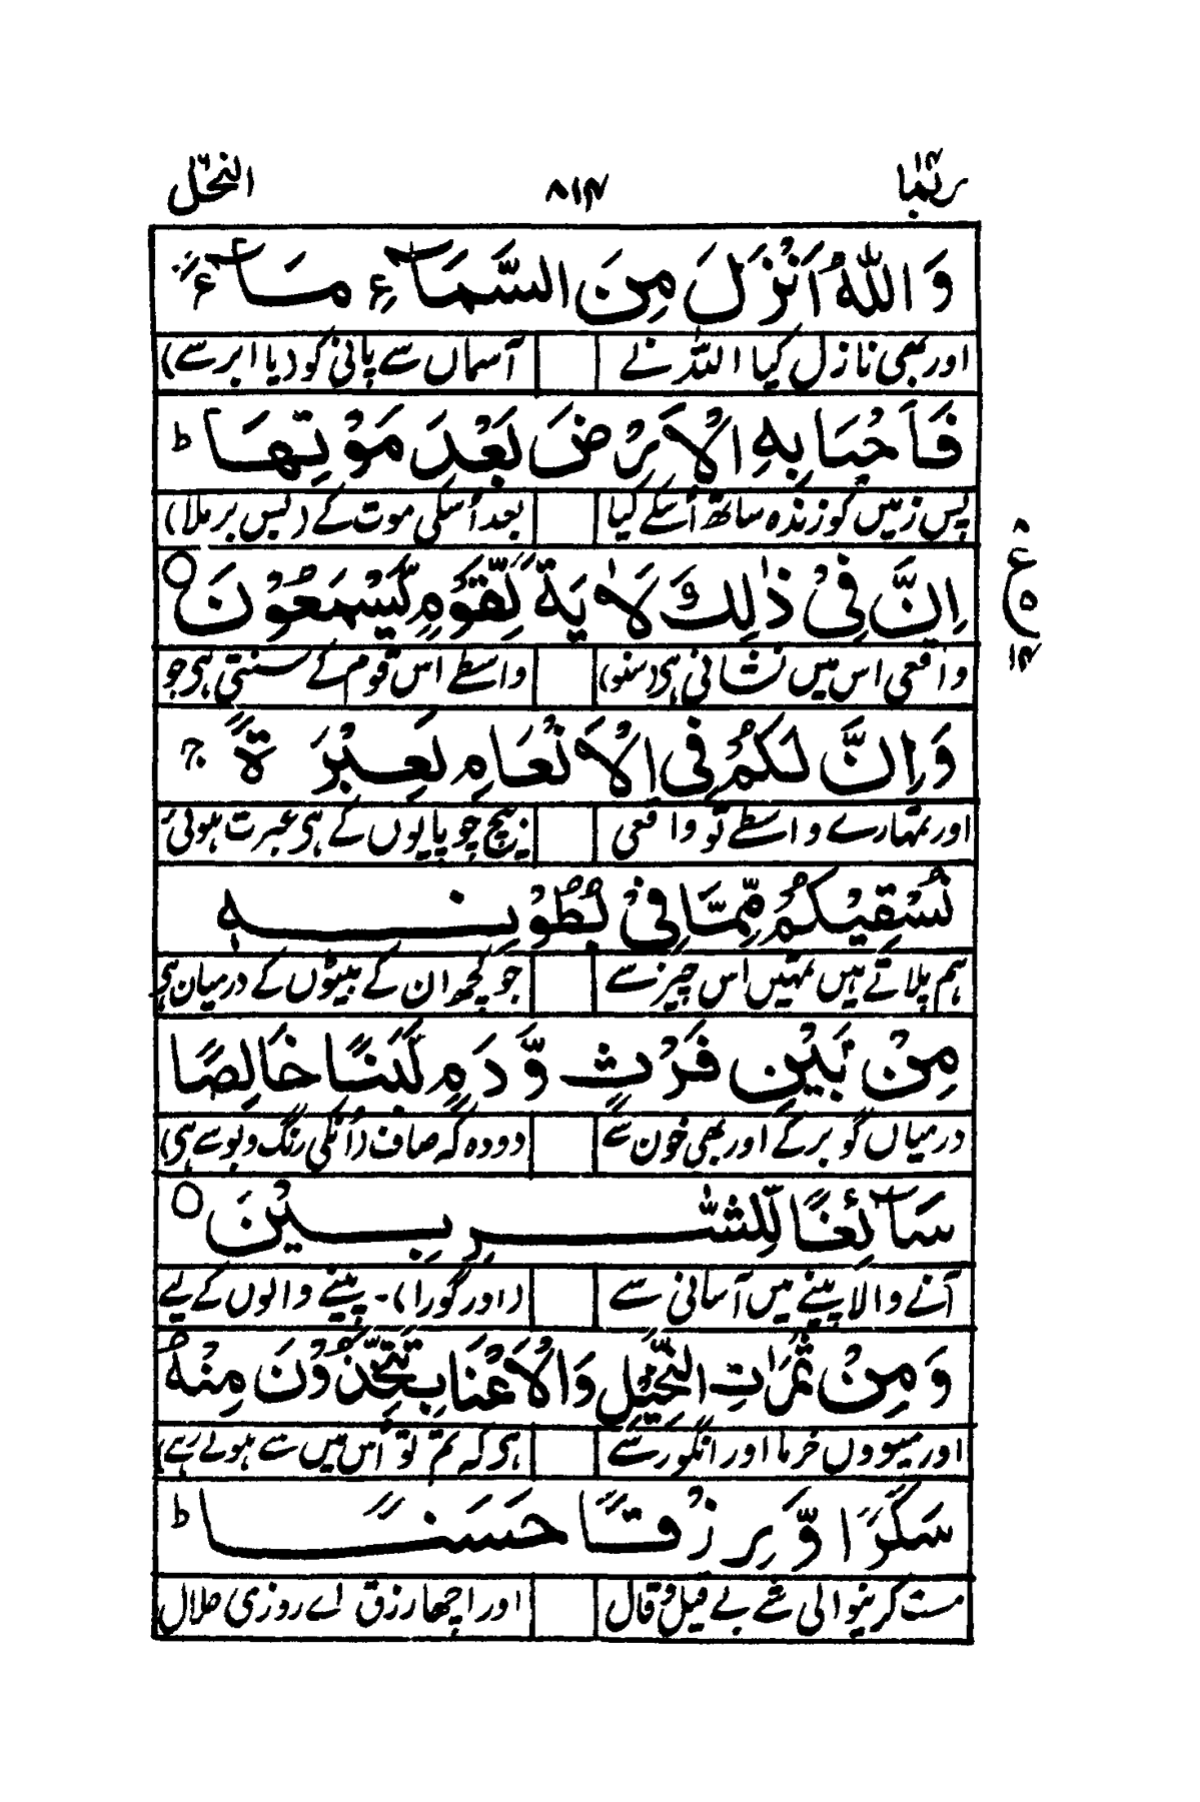 ربما ۱۴ ۸۱۴ النحل ۱۶
وَاللّٰهُ اَنْزَلَ مِنَ السَّمَآءِ مَآءً
اور بھی نازل کیا اللہ نے آسماں سے پانی کو دیا ابر سے)
فَاَحْيَا بِهِ الْاَرْضَ بَعْدَ مَوْتِهَا ط
پس زمیں کو زندہ ساتھ اُسکے کیا بعد اُسکی موت کے (بس برملا)
اِنَّ فِيْ ذٰلِكَ لَاٰيَةً لِّقَوْمٍ يَّسْمَعُوْنَ ○
۸ ع ۵ ۱۴
واقعی اس میں نشانی ہی (سنو) واسطے اس قوم کے سنتی ہی جو
وَاِنَّ لَكُمْ فِي الْاَنْعَامِ لَعِبْرَةً ج
اور تمہارے واسطے تو واقعی بیچ چوپایوں کے ہی عبرت ہوئی
نُسْقِيْكُمْ مِّمَّا فِيْ بُطُوْنِهٖ
ہم پلاتے ہیں تمہیں اس چیز سے جو کچھ ان کے پیٹوں کے درمیان ہی
مِنْ بَيْنِ فَرْثٍ وَّدَمٍ لَّبَنًا خَالِصًا
درمیاں گوبر کے اور بھی خون سے دودہ کہ صاف (اُنکی رنگ و بو سے ہی)
سَآئِغًا لِّلشّٰرِبِيْنَ ○
آنے والا پینے میں آسانی سے (اور گورا)۔ پینے والوں کے لیے
وَمِنْ ثَمَرٰتِ النَّخِيْلِ وَالْاَعْنَابِ تَتَّخِذُوْنَ مِنْهُ
اور میووں خرما اور انگور سے ہی کہ تم تو اُس میں سے ہو لے رہے
سَكَرًا وَّرِزْقًا حَسَنًا ط
مست کر نیوالی شے بے قیل و قال اور اچھا رزق اے روزی حلال